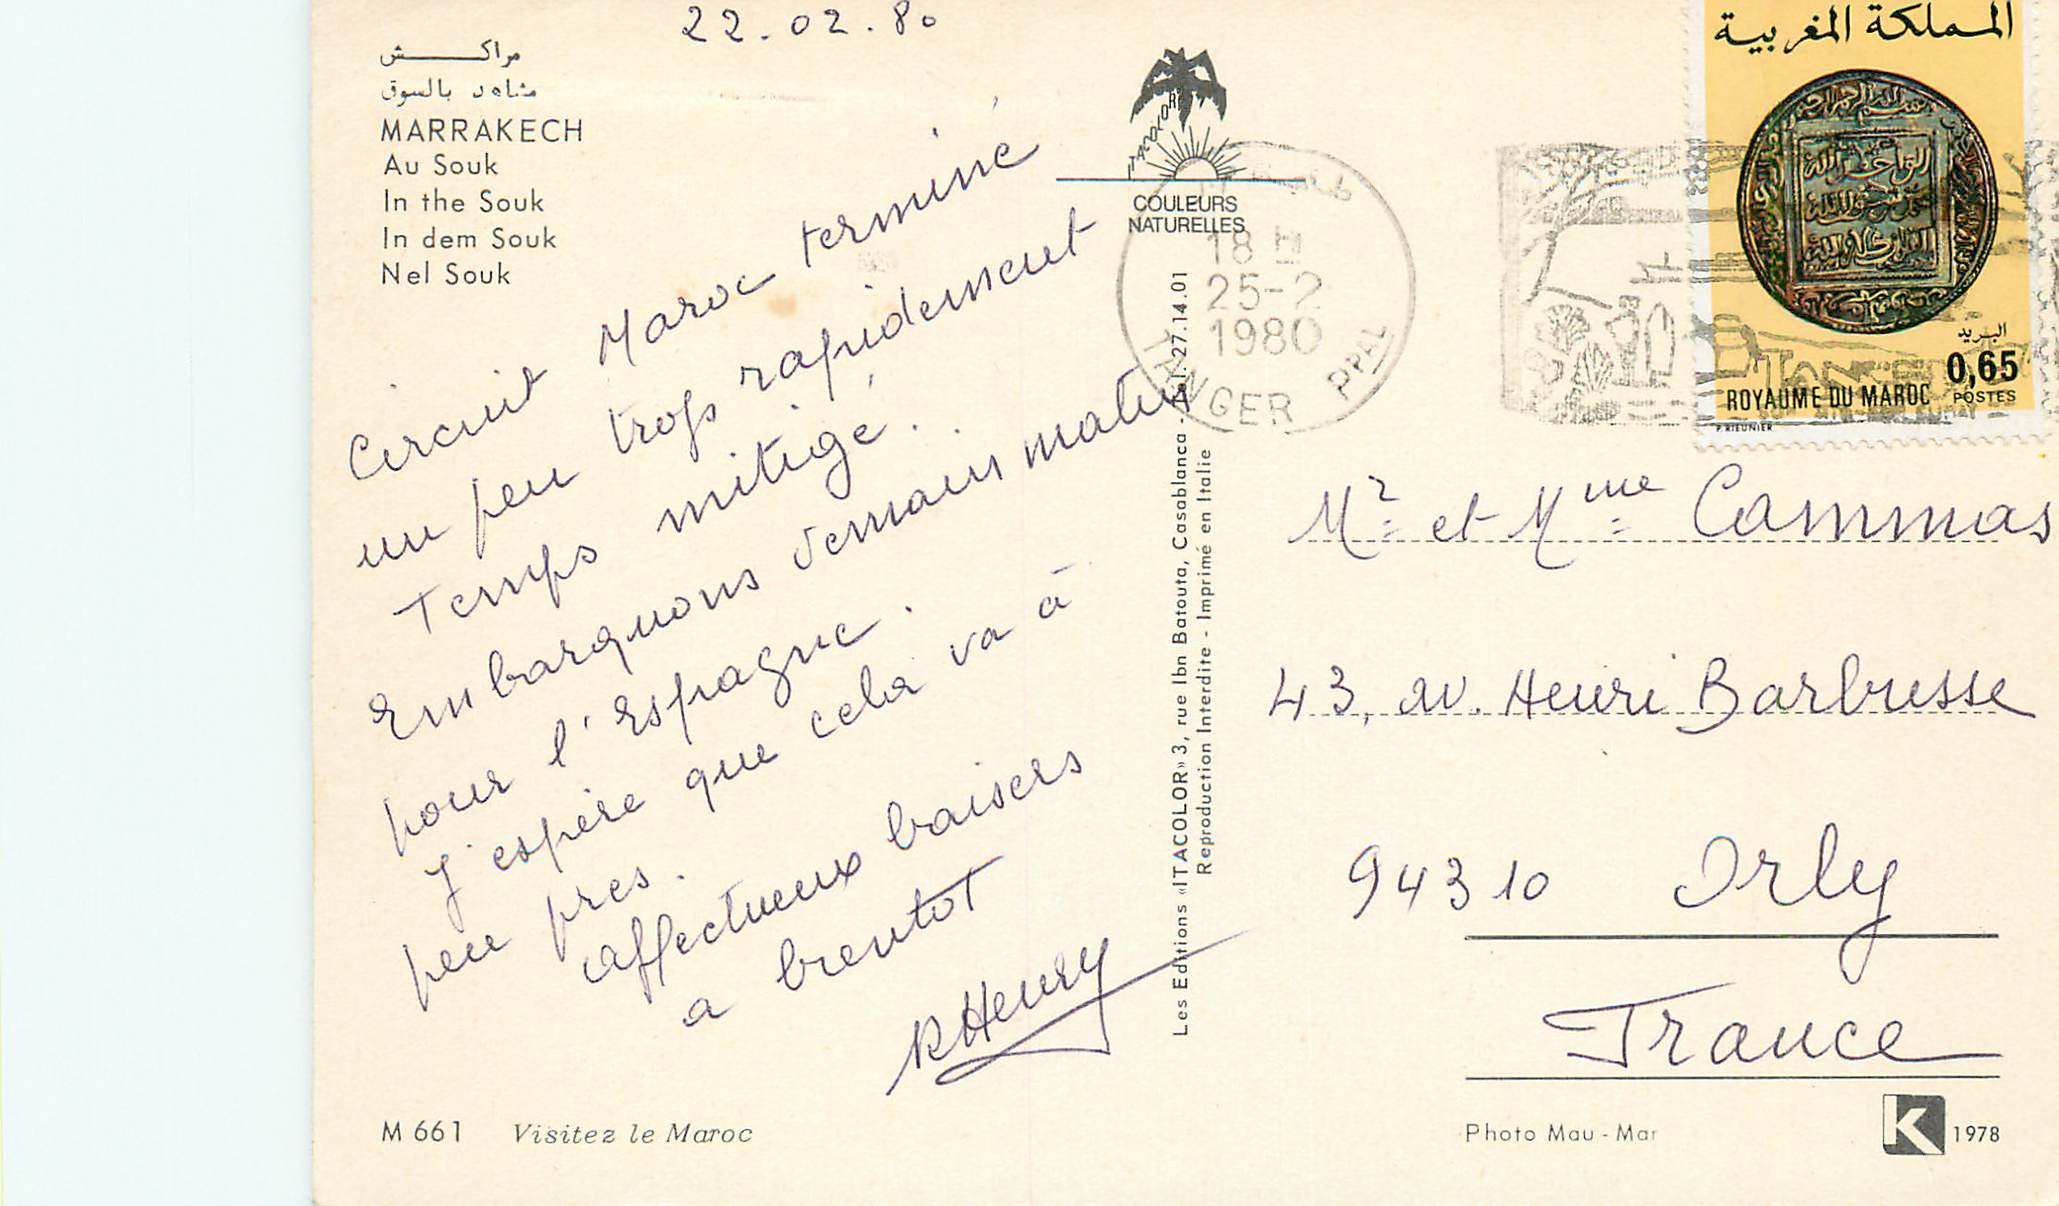 22.02.80
مراكــــش
مشاهد بالسوق
MARRAKECH
Au Souk
In the Souk
In dem Souk
Nel Souk
Circuit Maroc terminé
un peu trop rapidement
Temps mitigé.
Embarquons demain matin
pour l'Espagne.
J'espère que cela va à
peu pres.
affectueux baisers
a bientot
RHenry
M 661 Visitez le Maroc
COULEURS
NATURELLES
Les Editions «ITACOLOR» 3, rue Ibn Batouta, Casablanca - 27.14.01
Reproduction Interdite - Imprimé en Italie
18 H
25-2
1980
TANGER PPAL
المملكة المغربية
البريد
0,65
POSTES
ROYAUME DU MAROC
P. RIEUNIER
Mr et Mme Cammas
43, av. Henri Barbusse
94310 Orly
France
Photo Mau - Mar
K 1978